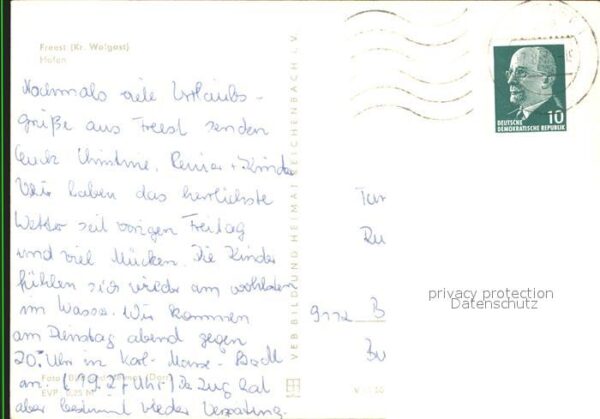 Freest (Kr. Wolgast)
Hafen
Nochmals viele Urlaubs-
grüße aus Freest senden
Euch Christine, Reiner + Kinder
Wir haben das herrlichste
Wetter seit vorigen Freitag
und viel Mücken. Die Kinder
fühlen sich wieder am wohlsten
im Wasser. Wir kommen
am Dienstag abend gegen
20. Uhr in Karl-Marx-Stadt
an. (19.27 Uhr) Der Zug hat
aber bestimmt wieder Verspätung.
EVP 0,25 M
VEB BILD UND HEIMAT REICHENBACH i. V.
10
DEUTSCHE
DEMOKRATISCHE REPUBLIK
9112 B
privacy protection
Datenschutz